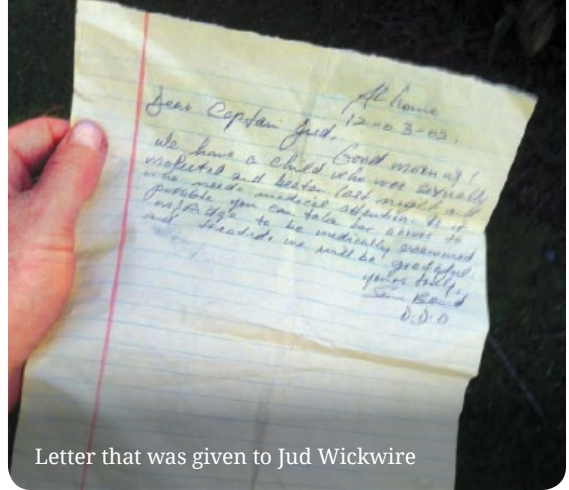 At home
12-03-03.
Dear Captain Jud,
Good morning!
We have a child who was sexually
molested and beaten last night and
who needs medical attention. Is it
possible you can take her across to
to be medically examined
and treated, we will be grateful.
yours truly,
Sam
D.D.O
Letter that was given to Jud Wickwire